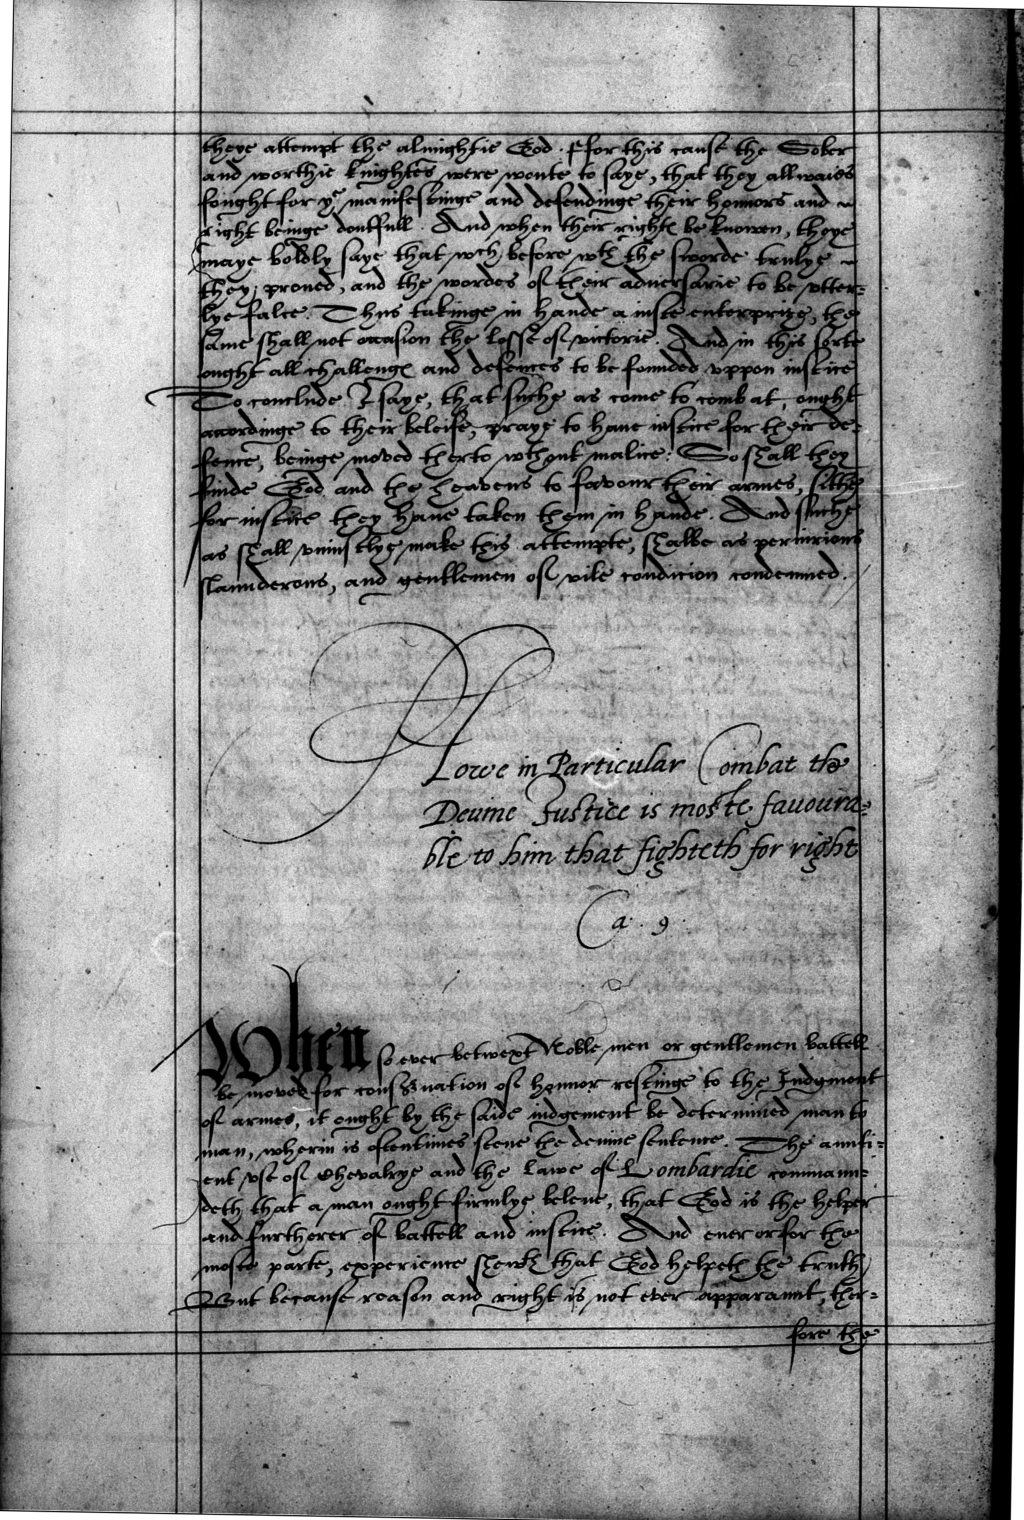 theye attempt the almightie God. ffor this cause the Sober
and worthie knightes were wonte to saye, that they allwaies
fought for yͤ manifestinge and defendinge their honnors and
right beinge doutfull. And when their right be knowen, theye
maye boldly saye that wᶜʰ before wᵗʰ the sworde trulye
they proued, and the wordes of their aduersarie to be vtter-
lye false. Thus takinge in hande a iuste enterprize, the
same shall not occasion the losse of victorie. And in this sorte
ought all challenges and defences to be founded vppon iustice
To conclude I saye, that suche as come to combat, ought
accordinge to their beleife, praye to haue iustice for their de-
fence, beinge moved therto wᵗʰout malice: So shall they
finde God and the heavens to favour their armes, sithe
for iustice they haue taken them in hande. And suche
as shall vniustlye make this attempte, shalbe as periurious
slaunderous, and gentlemen of vile condicion condemned.
Howe in Particular Combat the
Deuine Justice is moste favoura-
ble to him that fighteth for right
Ca. 9
When so ever betwext Noble men or gentlemen battell
be moved for conseruation of honnor restinge to the Judgment
of armes, it ought by the saide iudgement be determined man to
man, wherin is oftentimes seene the deuine sentence. The aunti-
ent vse of Chevalrye and the lawe of Lombardie commaun-
deth that a man ought firmlye beleue, that God is the helper
and furtherer of battell and iustice. And euer or for the
moste parte, experience sheweth that God helpeth the truth
But because reason and right is not ever apparaunt, ther-
fore the